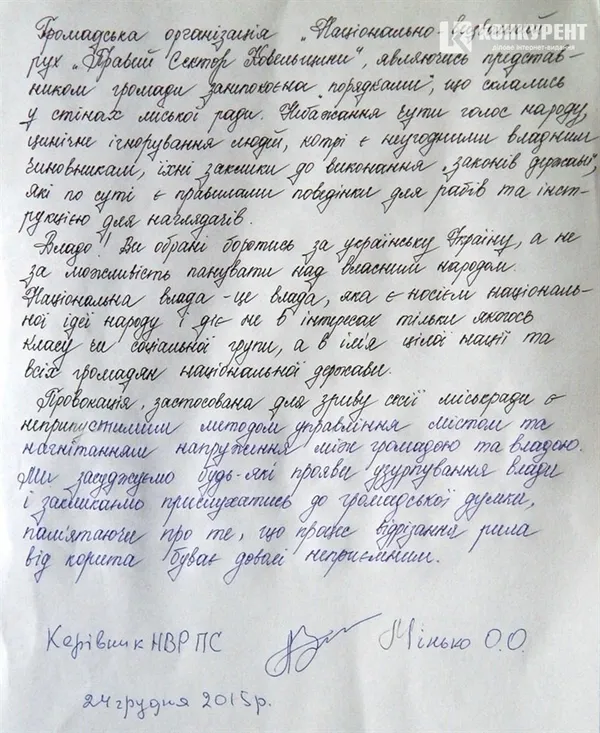 КОНКУРЕНТ
ділове інтернет-видання
Громадська організація „Національно-
рух „Правий Сектор Ковельщини", являючись представ-
ником громади занепокоєна „порядками", що склались
у стінах міської ради. Небажання чути голос народу,
цинічне ігнорування людей, котрі є неугодними владним
чиновникам, їхні заклики до виконання „законів держави",
які по суті є правилами поведінки для рабів та інст-
рукцією для наглядачів.
Владо! Ви обрані боротись за українську Україну, а не
за можливість панувати над власним народом.
Національна влада - це влада, яка є носієм національ-
ної ідеї народу і діє не в інтересах тільки якогось
класу чи соціальної групи, а в ім'я цілої нації та
всіх громадян національної держави.
Провокація, застосована для зриву сесії міськради є
неприпустимим методом управління містом та
нагнітанням напруження між громадою та владою.
Ми засуджуємо будь-які прояви узурпування влади
і закликаємо прислухатись до громадської думки,
пам'ятаючи про те, що процес відрізання рила
від корита буває доволі неприємним.
Керівник НВР ПС
Мінько О.О.
24 грудня 2015р.